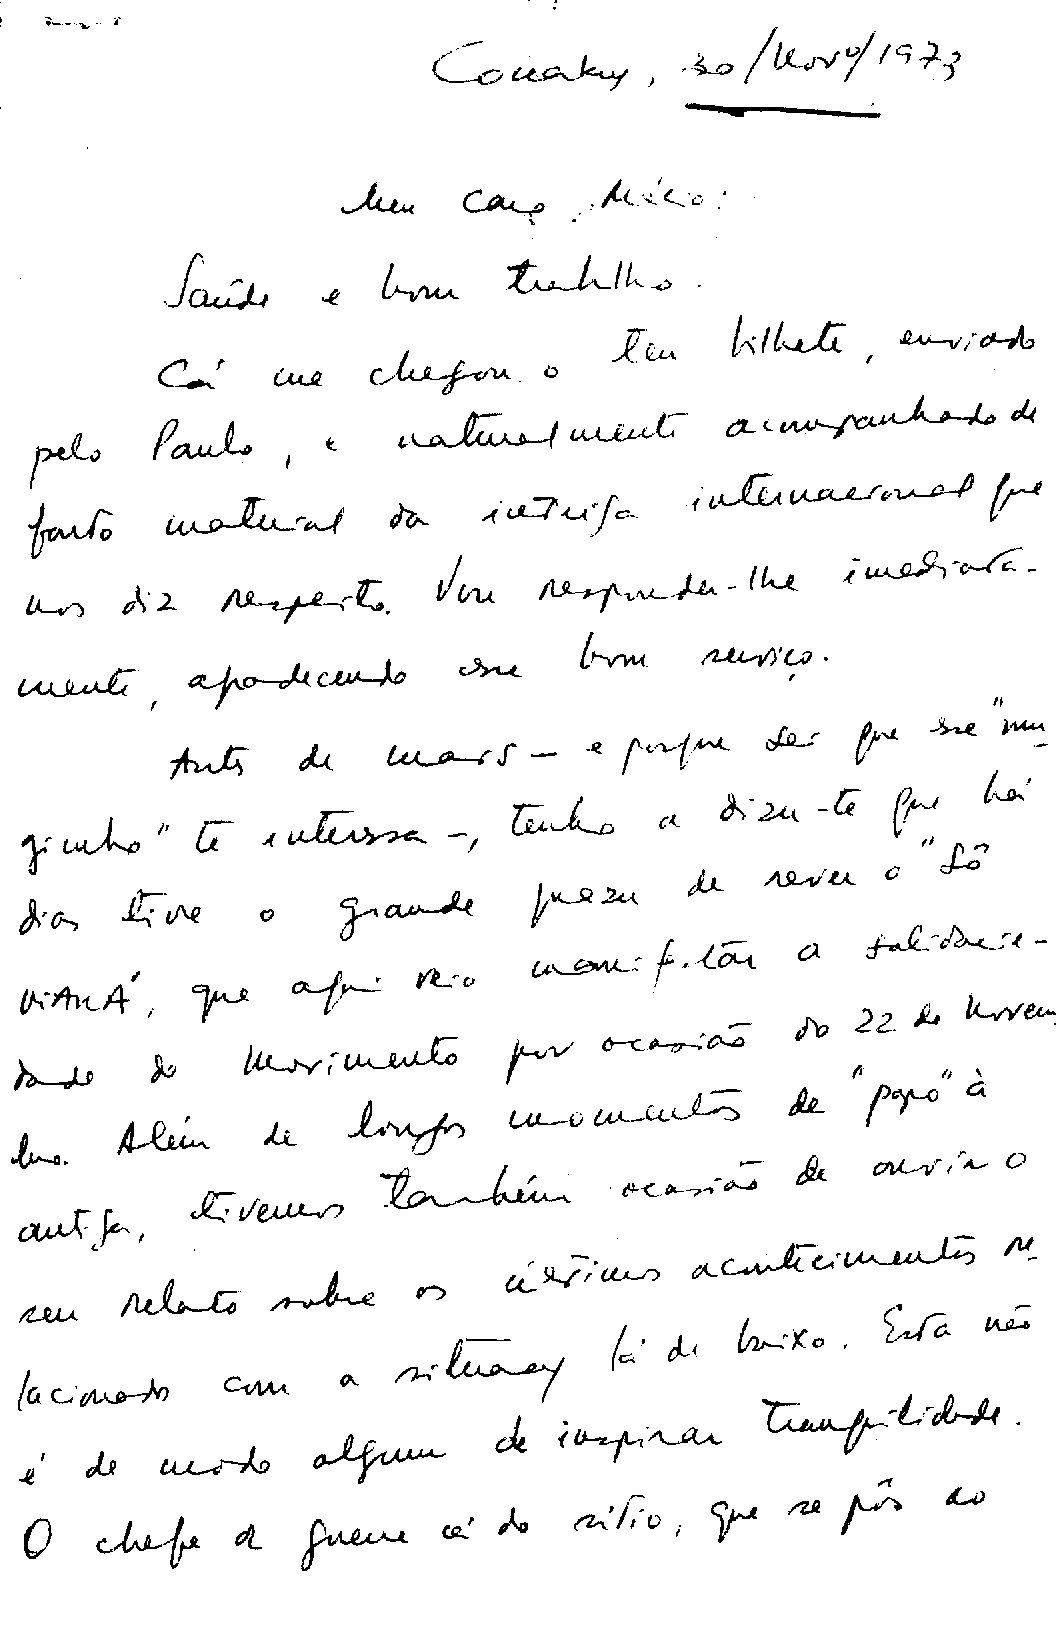 Conakry, 30/Novº/1973
Meu caro Mário:
Saúde e bom trabalho.
Cá me chegou o teu bilhete, enviado
pelo Paulo, e naturalmente acompanhado de
farto material da intriga internacional que
nos diz respeito. Vou responder-lhe imediata-
mente, agradecendo esse bom serviço.
Antes de mais — e porque sei que esse "mu-
jimbo" te interessa —, tenho a dizer-te que há
dias tive o grande prazer de rever o "Sô
VIANÁ", que aqui veio manifestar a solidarie-
dade do Movimento por ocasião do 22 de Novem
bro. Além de longos momentos de "papo" à
antiga, tivemos também ocasião de ouvir o
seu relato sobre os últimos acontecimentos re-
lacionados com a situação lá de baixo. Esta não
é de modo algum de inspirar tranquilidade.
O chefe de guerra cá do sítio, que se pôs ao